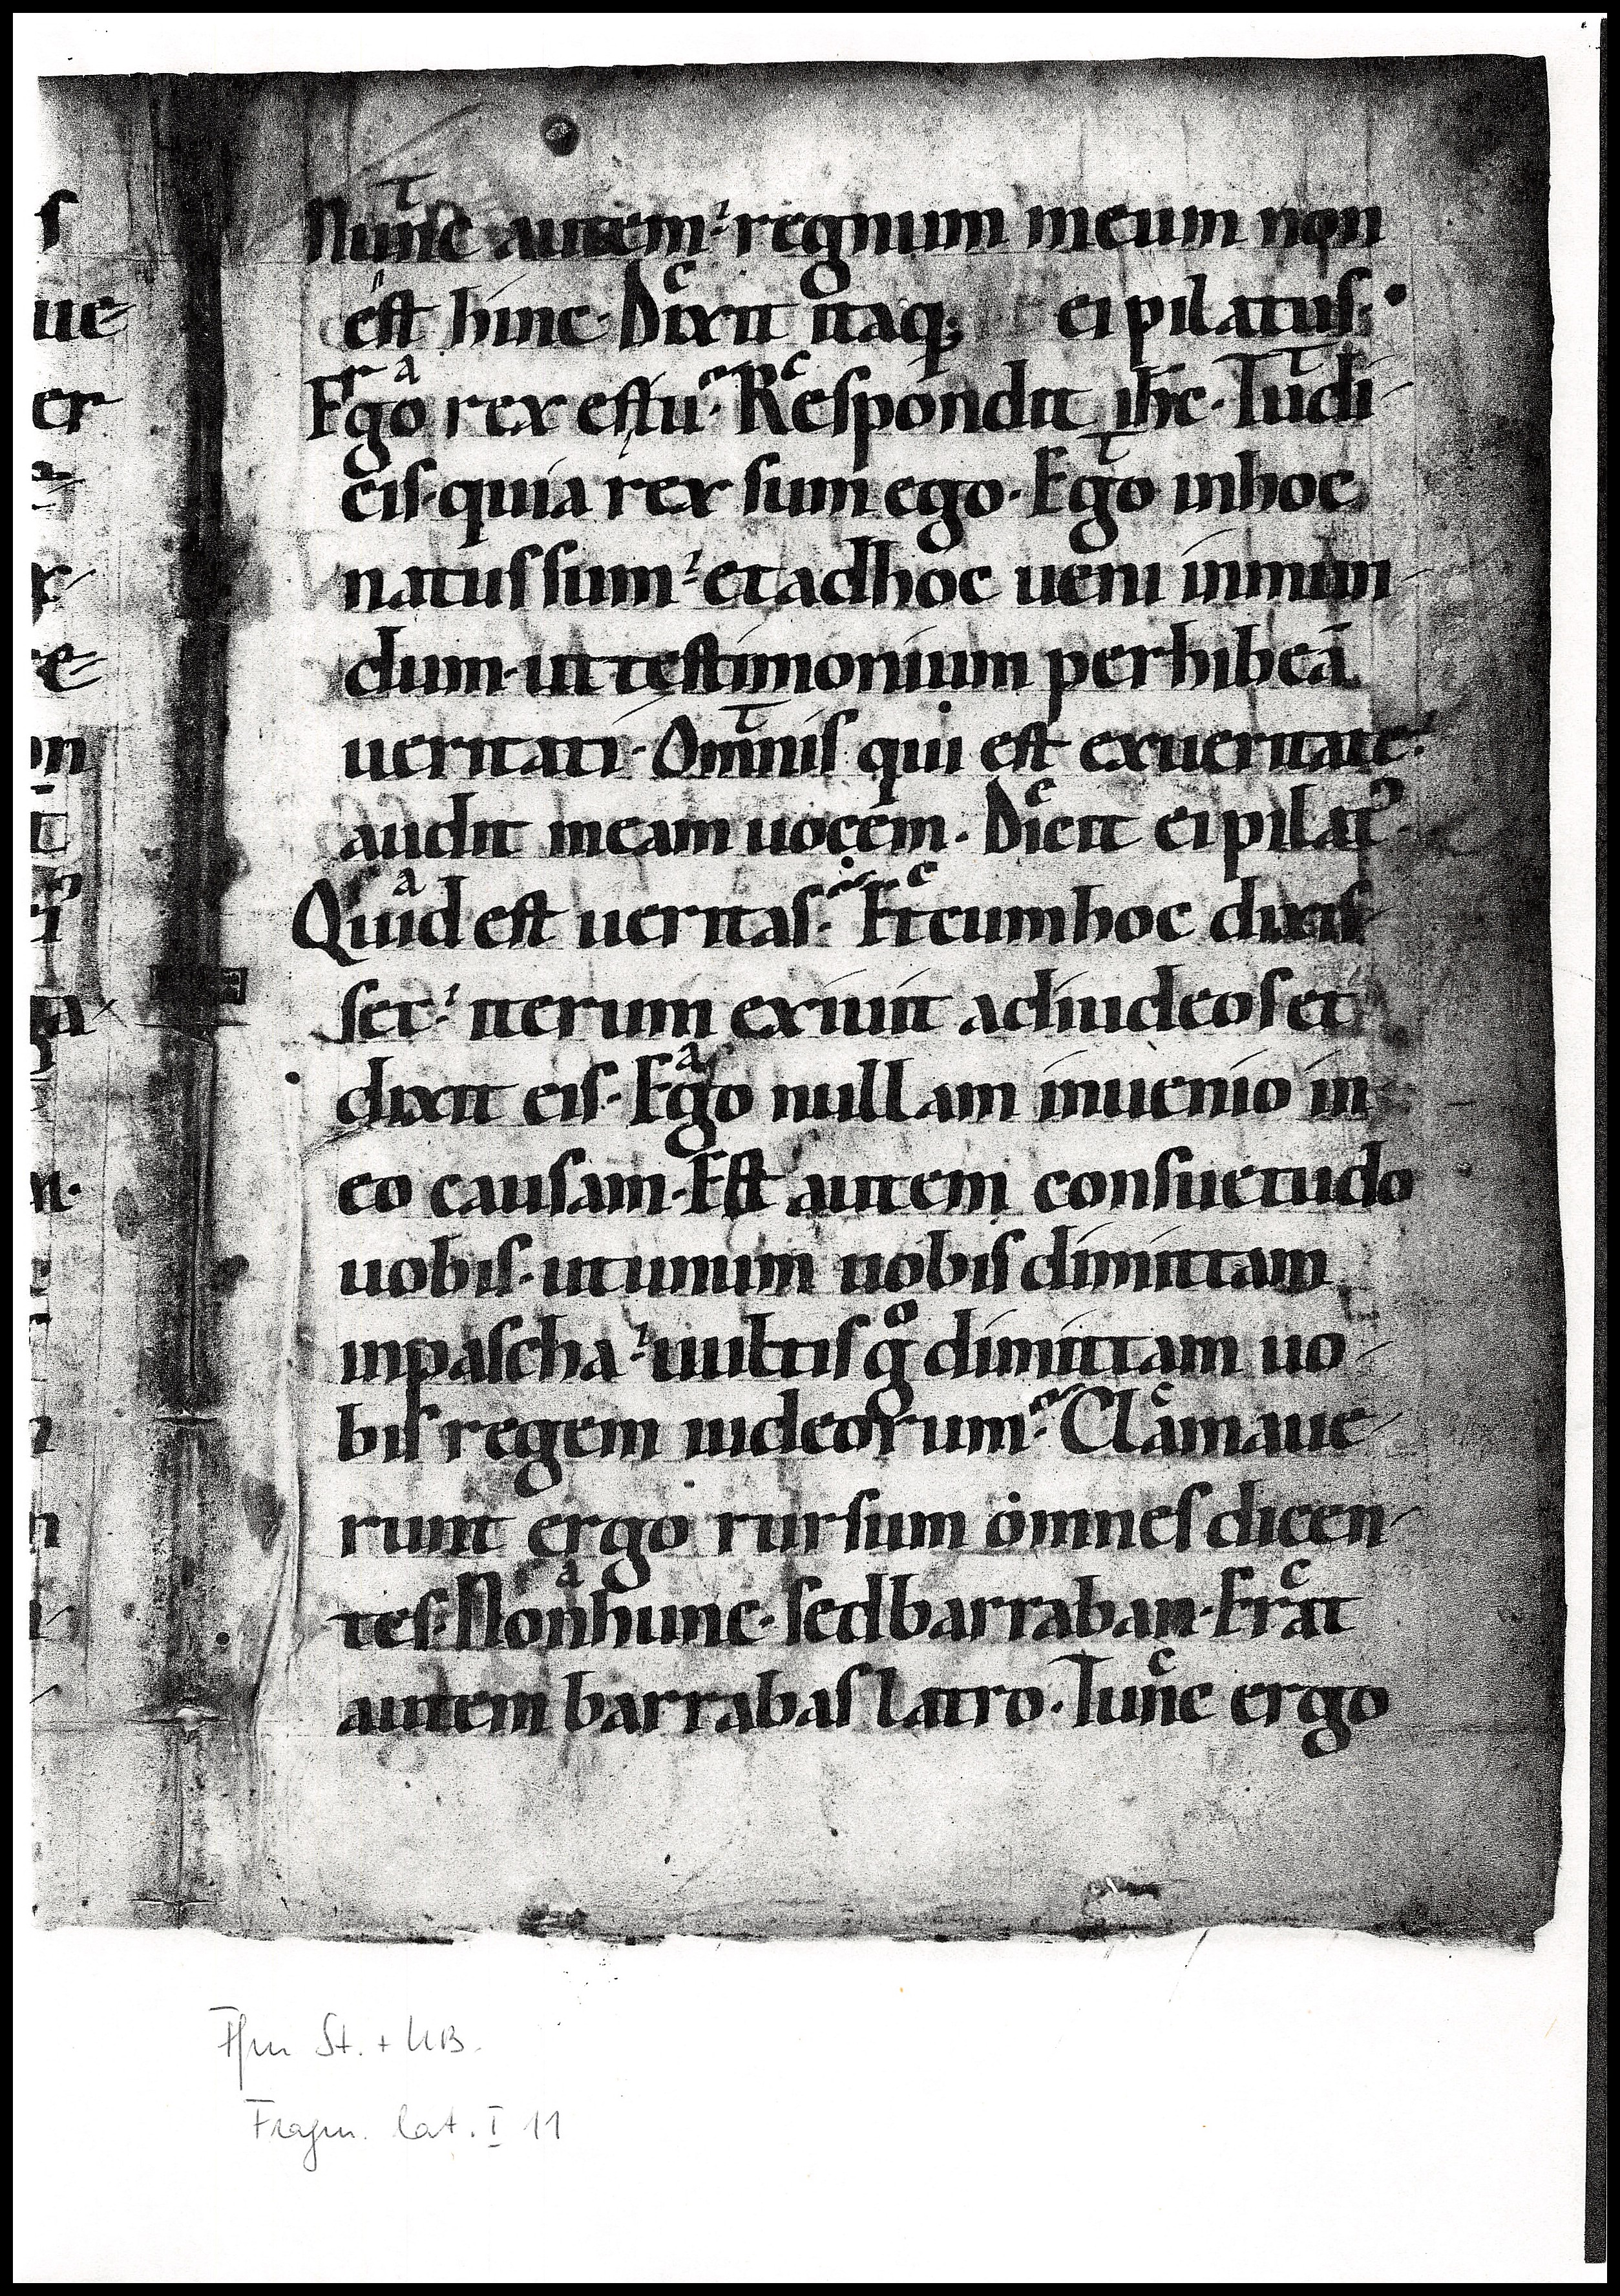 s
ue
er
Nunc autem regnum meum non
est hinc. Dixit itaq; ei pilatus.
Ergo rex es tu. Respondit ihc. Tu di
cis. quia rex sum ego. Ego inhoc
natus sum. et adhoc ueni inmun
dum. ut testimonium perhibeā
ueritati. Omnis qui est exueritate.
audit meam uocem. Dicit ei pilat᾽
Quid est ueritas. Et cum hoc dixis
set. iterum exiuit adiudeos et
dixit eis. Ego nullam inuenio in
eo causam. Est autem consuetudo
uobis. ut unum uobis dimittam
inpascha. uultis gͦ dimittam uo
bis regem iudeorum. Clamaue
runt ergo rursum omnes dicen
tes. Non hunc. sed barraban. Erat
autem barrabas latro. Tunc ergo
Ffm St. + UB.
Fragm. lat. I 11